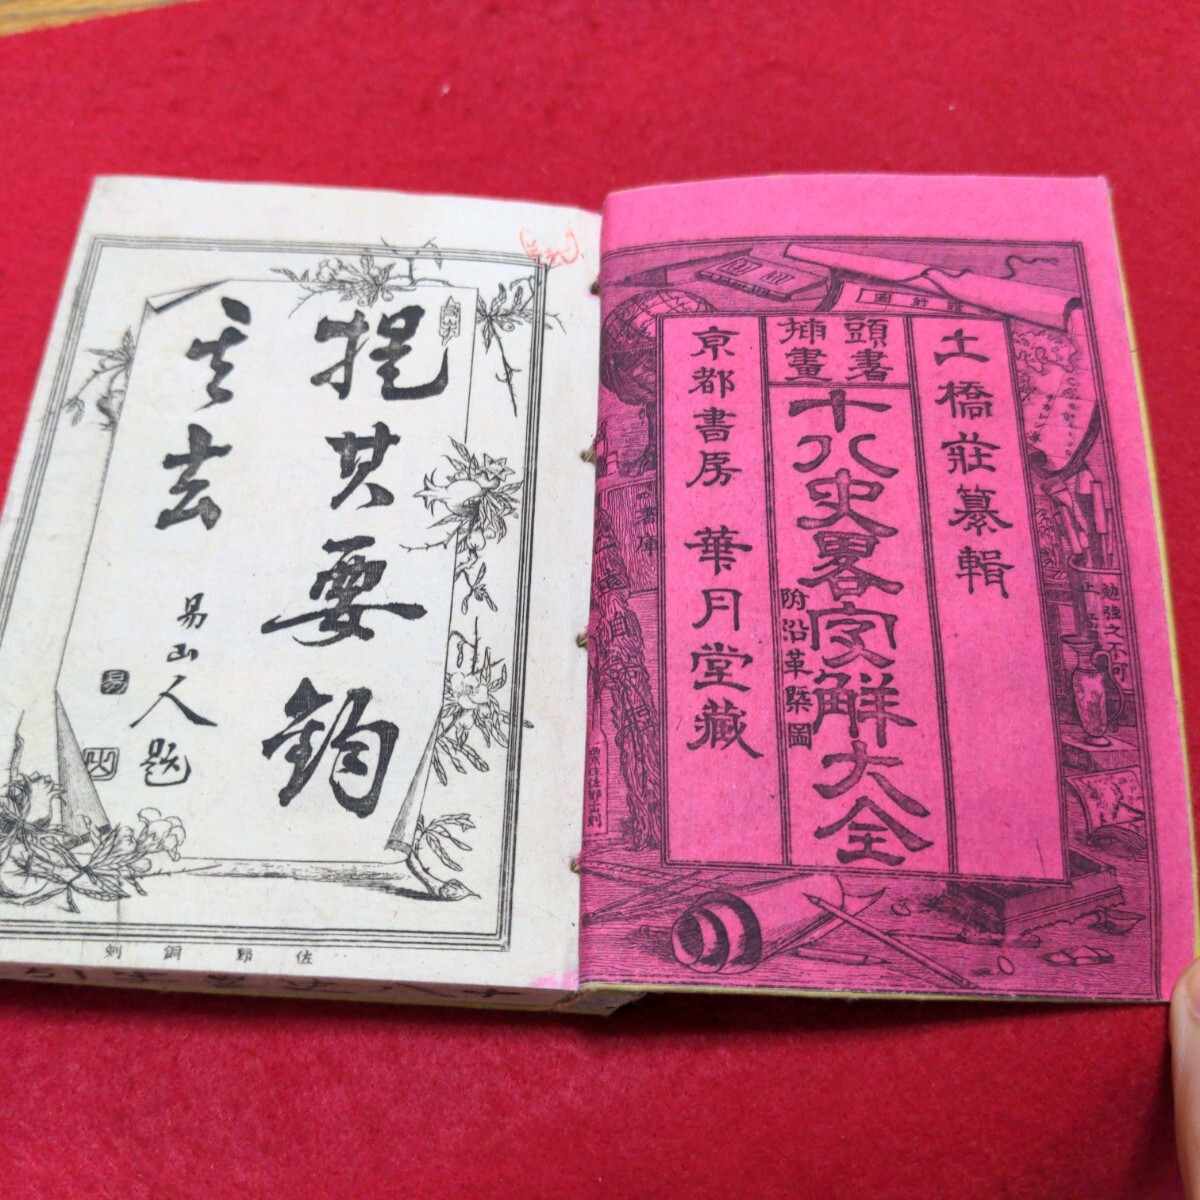 土橋莊纂輯
頭書
挿畫
十八史畧字解大全
附沿革槩圖
京都書房 華月堂藏
勉強之不可
提其要鈎
其玄
易山人題
佐野銅刻